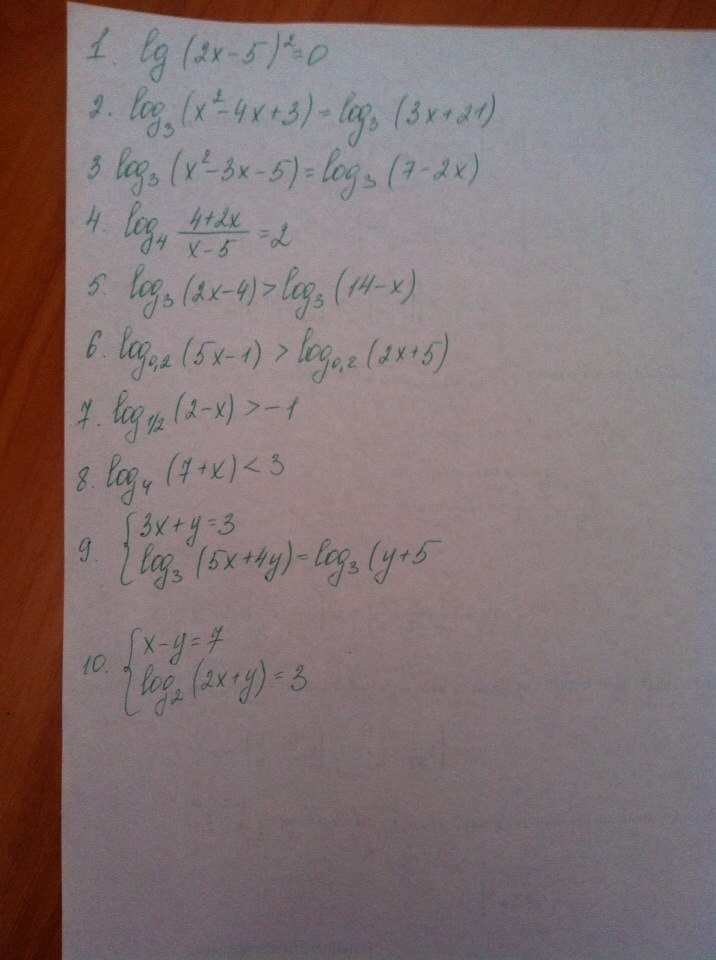 1. lg (2x-5)²=0
2. log₃(x²-4x+3) = log₃ (3x+21)
3 log₃ (x²-3x-5) = log₃ (7-2x)
4. log₄ (4+2x)/(x-5) = 2
5. log₃ (2x-4) > log₃ (14-x)
6. log₀,₂ (5x-1) > log₀,₂ (2x+5)
7. log₁/₂ (2-x) > -1
8. log₄ (7+x) < 3
9. { 3x+y=3
log₃ (5x+4y) = log₃ (y+5
10. { x-y=7
log₂ (2x+y) = 3